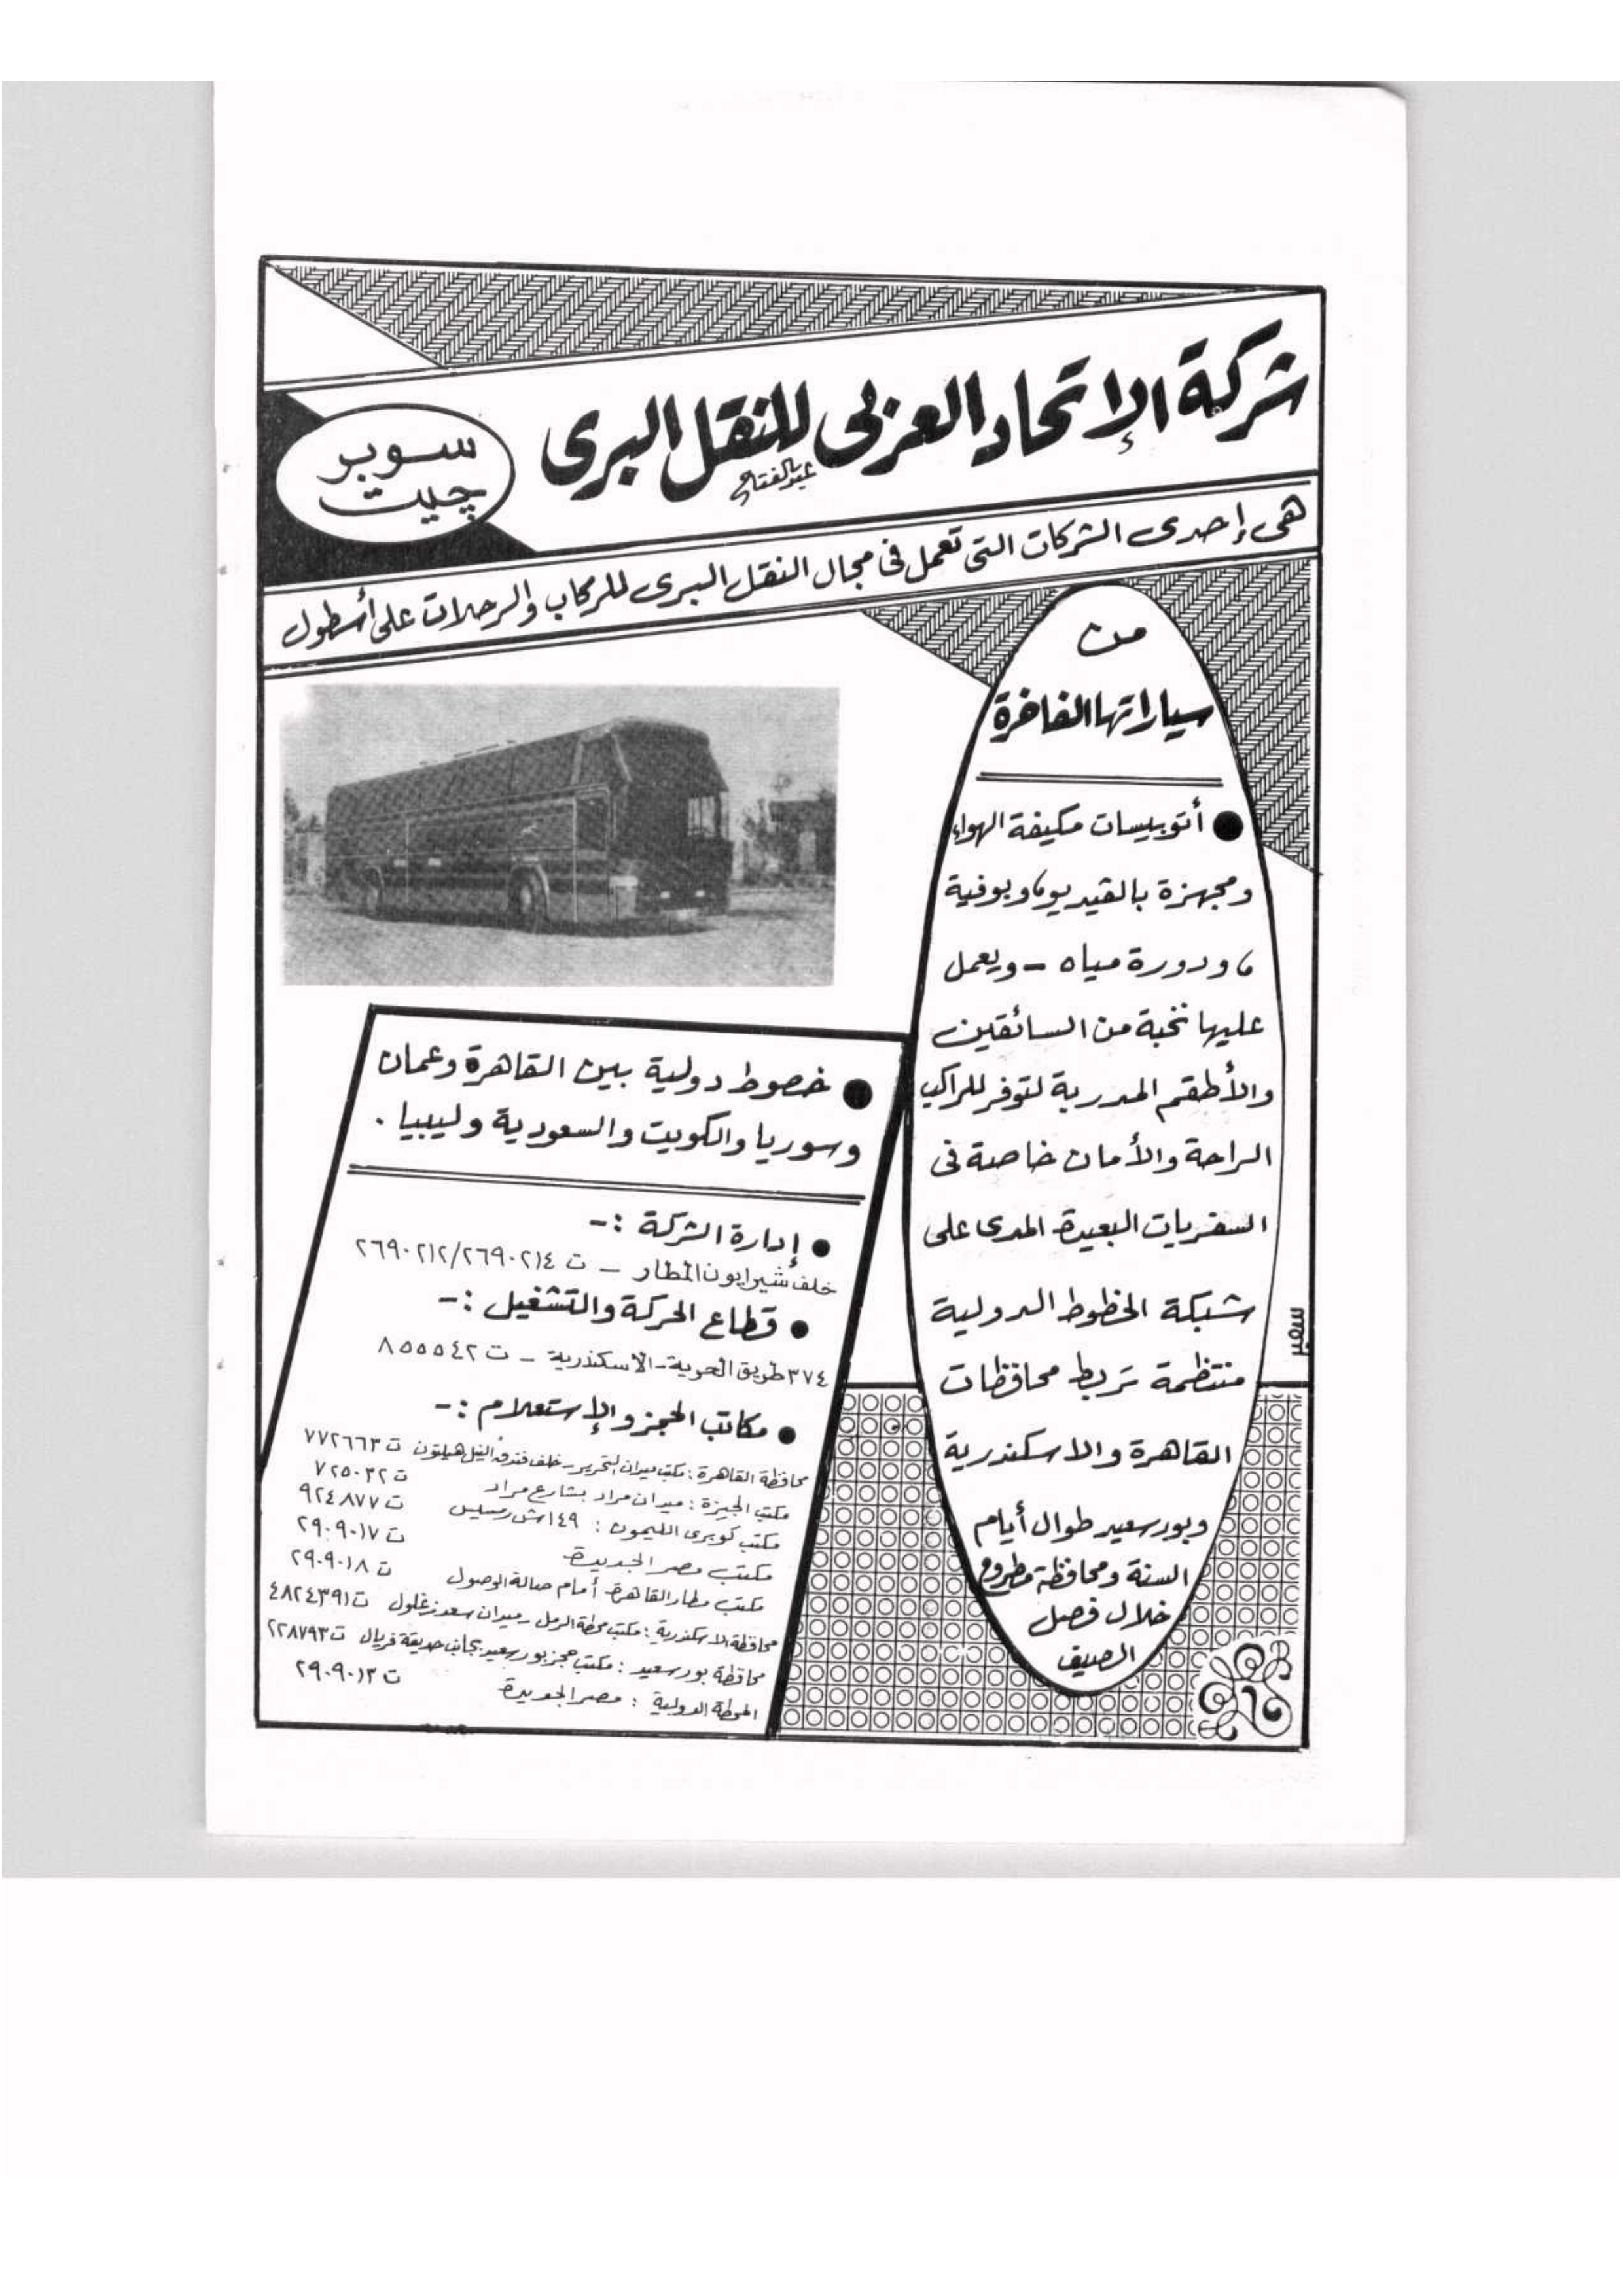 شركة الإتحاد العربى للنقل البرى
عبدالفتاح
سوبر
چيت
هى إحدى الشركات التى تعمل فى مجال النقل البرى للركاب والرحلات على أسطول
من
سياراتها الفاخرة
● أتوبيسات مكيفة الهواء
ومجهزة بالڤيديو، وبوفية
، ودورة مياه - ويعمل
عليها نخبة من السائقين
والأطقم المدربة لتوفر للراكب
الراحة والأمان خاصة فى
السفريات البعيدة المدى على
شبكة الخطوط الدولية
منتظمة تربط محافظات
القاهرة والاسكندرية
وبورسعيد طوال أيام
السنة ومحافظة مطروح
خلال فصل
الصيف
سمير
● خصوط دولية بين القاهرة وعمان
وسوريا والكويت والسعودية وليبيا .
● إدارة الشركة :-
خلف شيراتون المطار - ت ٢٦٩٠٢١٢/٢٦٩٠٢١٤
● قطاع الحركة والتشغيل :-
٣٧٤ طريق الحرية - الاسكندرية - ت ٨٥٥٥٤٢
● مكاتب الحجز والإستعلام :-
محافظة القاهرة : مكتب ميدان التحرير - خلف فندق النيل هيلتون ت ٧٧٢٦٦٣
مكتب الجيزة : ميدان مراد بشارع مراد ت ٧٢٥٠٣٢
مكتب كوبرى الليمون : ١٤٩ ش رمسيس ت ٩٢٤٨٧٧
مكتب مصر الجديدة ت ٢٩٠٩٠١٧
مكتب مطار القاهرة أمام صالة الوصول ت ٢٩٠٩٠١٨
محافظة الاسكندرية : مكتب محطة الرمل - ميدان سعد زغلول ت ٤٨٢٤٣٩١
محافظة بورسعيد : مكتب حجز بورسعيد بجانب حديقة فريال ت ٢٢٨٧٩٣
المحطة الدولية : مصر الجديدة ت ٢٩٠٩٠١٣